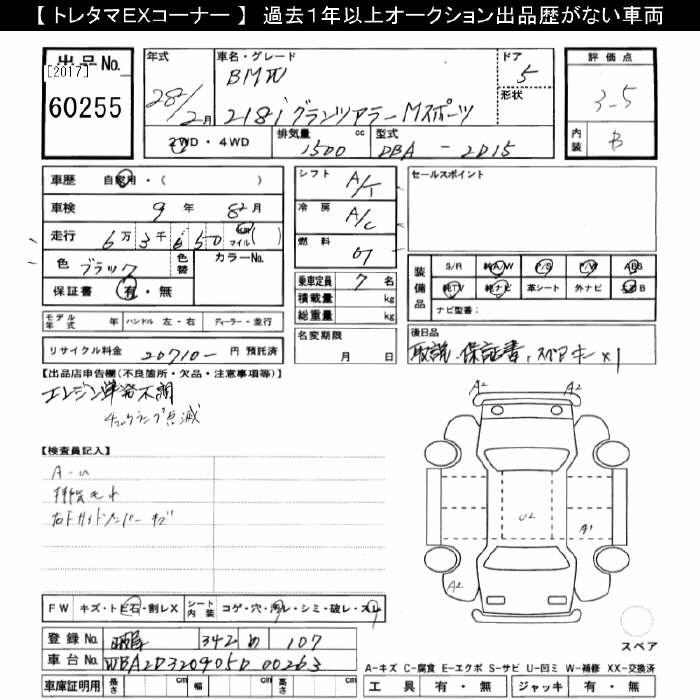 【 トレタマEXコーナー 】 過去1年以上オークション出品歴がない車両
出品No.
[2017]
60255
年式
28/2月
車名・グレード
BMW
218i グランツアラー Mスポーツ
ドア
5
形状
2WD・4WD
排気量
1500
cc
型式
DBA - 2D15
評価点
3-5
内装
B
車歴 自家用・( )
車検 9年 8 2月
走行 6万 3千 650 km マイル ( )
色 ブラック
色替
カラーNo.
保証書 有・無
シフト A/T
冷房 A/C
燃料
乗車定員 7 名
積載量 kg
総重量 kg
セールスポイント
装備品
S/R 純A/W P/S P/W ABS
純TV 純ナビ 革シート 外ナビ B
ナビ型番:
モデル年式 年
ハンドル 左・右
ディーラー・並行
リサイクル料金 20710- 円 預託済
名変期限
月 日
後日品
取説・保証書・スペアキー×1
【出品店申告欄(不良箇所・欠品・注意事項等)】
エンジン単発不調
チェックランプ点滅
【検査員記入】
A-U
FW
キズ・トビ石・割レX
シート内装
コゲ・穴・汚レ・シミ・破レ・スレ
A2
A2
U2
A1
A2
スペア
登録No. 342 め 107
車台No. WBA2D320905D00263
A-キズ C-腐食 E-エクボ S-サビ U-凹ミ W-補修 XX-交換済
車庫証明用
長さ cm
幅 cm
高さ cm
工具 有・無
ジャッキ 有・無